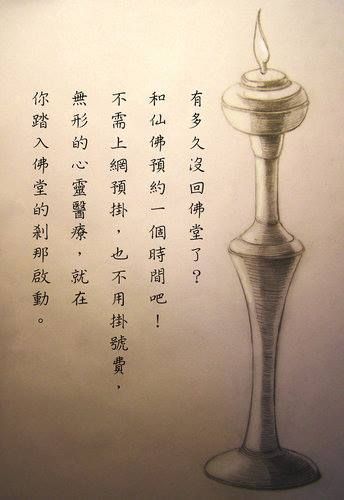 有多久沒回佛堂了？
和仙佛預約一個時間吧！
不需上網預掛，也不用掛號費，
無形的心靈醫療，就在
你踏入佛堂的剎那啟動。